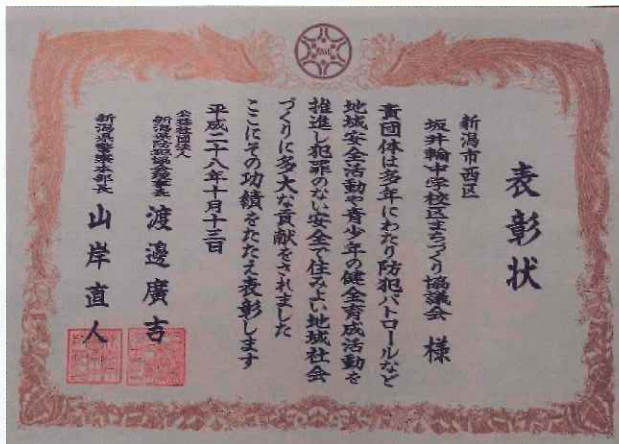 表彰状
新潟市西区
坂井輪中学校区まちづくり協議会 様
貴団体は多年にわたり防犯パトロールなど
地域安全活動や青少年の健全育成活動を
推進し犯罪のない安全で住みよい地域社会
づくりに多大な貢献をされました
ここにその功績をたたえ表彰します
平成二十八年十月十三日
公益社団法人
新潟県防犯協会会長 渡邉廣吉
新潟県警察本部長 山岸直人